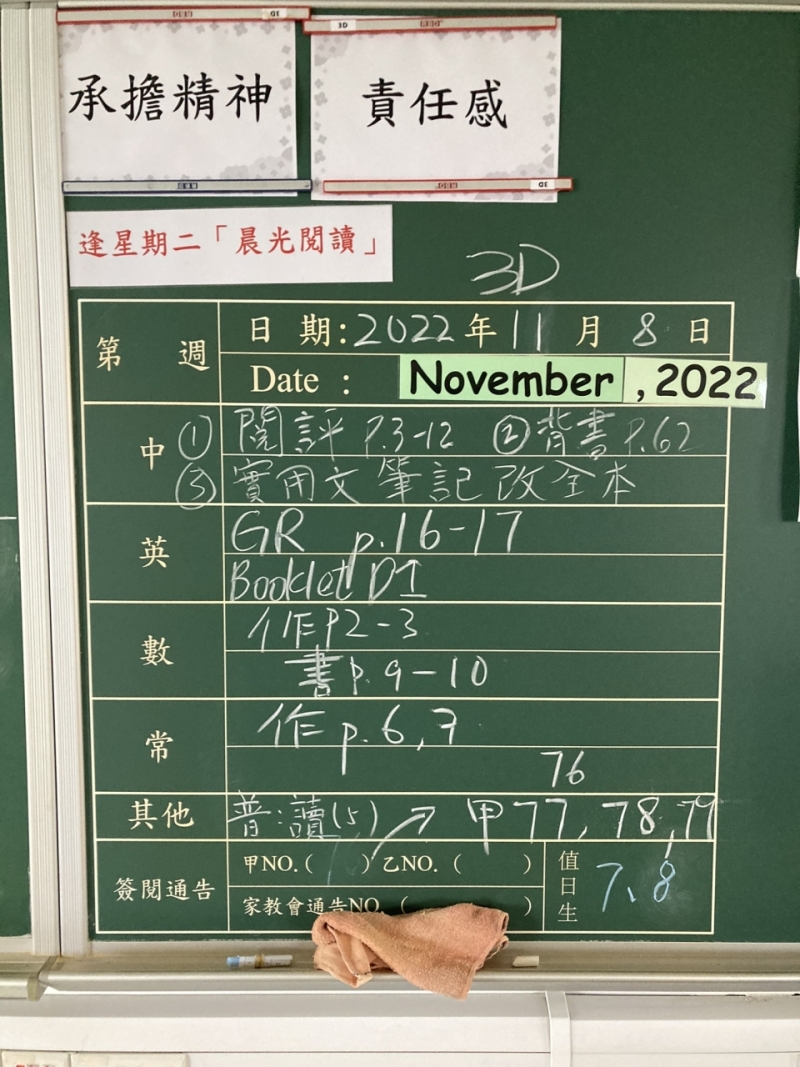 承擔精神
責任感
逢星期二「晨光閱讀」
3D
第 週
日 期:2022年 11 月 8 日
Date : November , 2022
中 ① 閱評 P.3-12 ② 背書 P.62
③ 實用文筆記改全本
英 GR p.16-17
Booklet D1
數 作P2-3
書p.9-10
常 作p.6,7
76
其他 普:讀(5) ↗ 甲77,78,79
簽閱通告 甲NO.( ) 乙NO.( )
家教會通告NO. ( )
值日生 7、8